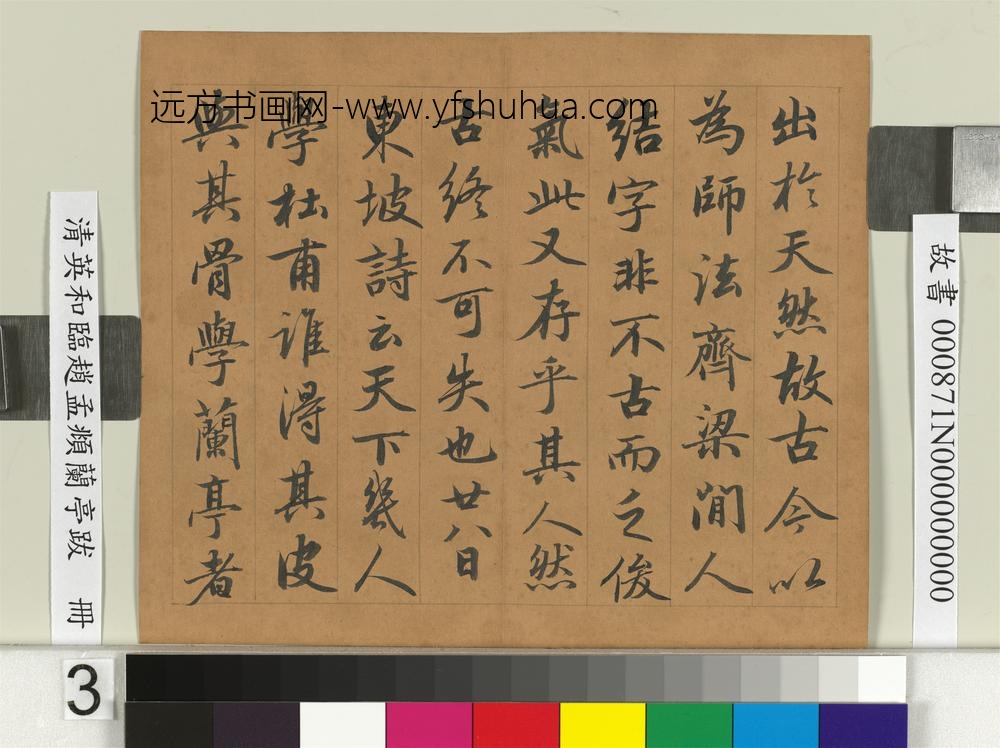 远方书画网-www.yfshuhua.com
出於天然故古今以
為師法齊梁間人
結字非不古而乏俊
氣此又存乎其人然
古終不可失也廿八日
東坡詩云天下幾人
學杜甫誰得其皮
與其骨學蘭亭者
故書 000871N000000000
清英和臨趙孟頫蘭亭跋 冊
3